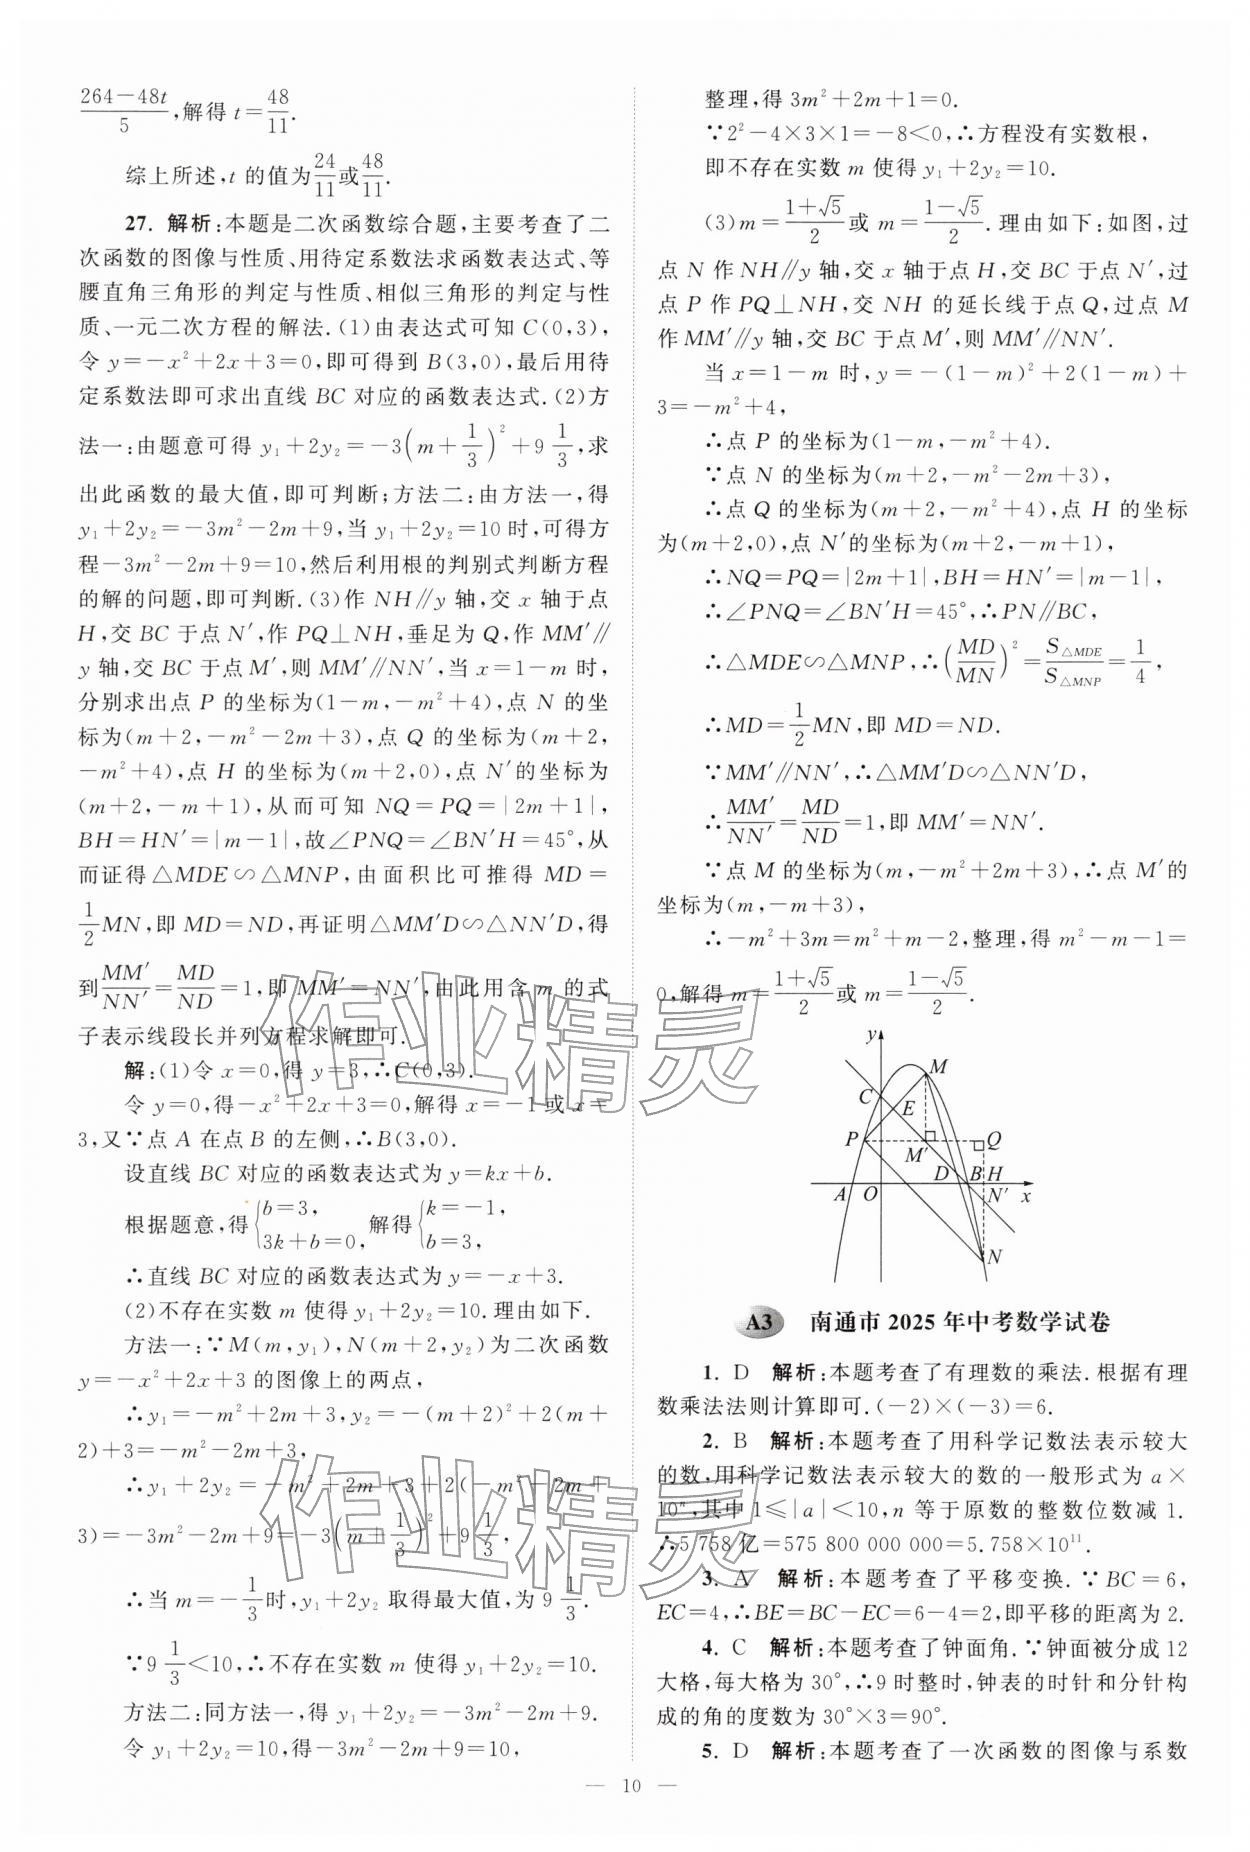 264－48t/5,解得 t＝48/11.
综上所述,t 的值为24/11或48/11.
27. 解析:本题是二次函数综合题,主要考查了二
次函数的图像与性质、用待定系数法求函数表达式、等
腰直角三角形的判定与性质、相似三角形的判定与性
质、一元二次方程的解法.(1)由表达式可知 C(0,3),
令 y＝－x²＋2x＋3＝0,即可得到 B(3,0),最后用待
定系数法即可求出直线 BC 对应的函数表达式.(2)方
法一:由题意可得 y₁＋2y₂＝－3(m＋1/3)²＋9 1/3,求
出此函数的最大值,即可判断;方法二:由方法一,得
y₁＋2y₂＝－3m²－2m＋9,当 y₁＋2y₂＝10 时,可得方
程－3m²－2m＋9＝10,然后利用根的判别式判断方程
的解的问题,即可判断.(3)作 NH∥y 轴,交 x 轴于点
H,交 BC 于点 N′,作 PQ⊥NH,垂足为 Q,作 MM′∥
y 轴,交 BC 于点 M′,则 MM′∥NN′,当 x＝1－m 时,
分别求出点 P 的坐标为(1－m,－m²＋4),点 N 的坐
标为(m＋2,－m²－2m＋3),点 Q 的坐标为(m＋2,
－m²＋4),点 H 的坐标为(m＋2,0),点 N′的坐标为
(m＋2,－m＋1),从而可知 NQ＝PQ＝|2m＋1|,
BH＝HN′＝|m－1|,故∠PNQ＝∠BN′H＝45°,从
而证得△MDE∽△MNP,由面积比可推得 MD＝
1/2MN,即 MD＝ND,再证明△MM′D∽△NN′D,得
到MM′/NN′＝MD/ND＝1,即 MM′＝NN′,由此用含 m 的式
子表示线段长并列方程求解即可.
解:(1)令 x＝0,得 y＝3,∴C(0,3).
令 y＝0,得－x²＋2x＋3＝0,解得 x＝－1 或 x＝
3,又∵点 A 在点 B 的左侧,∴B(3,0).
设直线 BC 对应的函数表达式为 y＝kx＋b.
根据题意,得{b＝3, 3k＋b＝0, 解得{k＝－1, b＝3,
∴直线 BC 对应的函数表达式为 y＝－x＋3.
(2)不存在实数 m 使得 y₁＋2y₂＝10.理由如下.
方法一:∵M(m,y₁),N(m＋2,y₂)为二次函数
y＝－x²＋2x＋3 的图像上的两点,
∴y₁＝－m²＋2m＋3,y₂＝－(m＋2)²＋2(m＋
2)＋3＝－m²－2m＋3,
∴y₁＋2y₂＝－m²＋2m＋3＋2(－m²－2m＋
3)＝－3m²－2m＋9＝－3(m＋1/3)²＋9 1/3,
∴当 m＝－1/3时,y₁＋2y₂ 取得最大值,为 9 1/3.
∵9 1/3＜10,∴不存在实数 m 使得 y₁＋2y₂＝10.
方法二:同方法一,得 y₁＋2y₂＝－3m²－2m＋9.
令 y₁＋2y₂＝10,得－3m²－2m＋9＝10,
整理,得 3m²＋2m＋1＝0.
∵2²－4×3×1＝－8＜0,∴方程没有实数根,
即不存在实数 m 使得 y₁＋2y₂＝10.
(3)m＝1＋√5/2或 m＝1－√5/2.理由如下:如图,过
点 N 作 NH∥y 轴,交 x 轴于点 H,交 BC 于点 N′,过
点 P 作 PQ⊥NH,交 NH 的延长线于点 Q,过点 M
作 MM′∥y 轴,交 BC 于点 M′,则 MM′∥NN′.
当 x＝1－m 时,y＝－(1－m)²＋2(1－m)＋
3＝－m²＋4,
∴点 P 的坐标为(1－m,－m²＋4).
∵点 N 的坐标为(m＋2,－m²－2m＋3),
∴点 Q 的坐标为(m＋2,－m²＋4),点 H 的坐标
为(m＋2,0),点 N′的坐标为(m＋2,－m＋1),
∴NQ＝PQ＝|2m＋1|,BH＝HN′＝|m－1|,
∴∠PNQ＝∠BN′H＝45°,∴PN∥BC,
∴△MDE∽△MNP,∴(MD/MN)²＝S△MDE/S△MNP＝1/4,
∴MD＝1/2MN,即 MD＝ND.
∵MM′∥NN′,∴△MM′D∽△NN′D,
∴MM′/NN′＝MD/ND＝1,即 MM′＝NN′.
∵点 M 的坐标为(m,－m²＋2m＋3),∴点 M′的
坐标为(m,－m＋3),
∴－m²＋3m＝m²＋m－2,整理,得 m²－m－1＝
0,解得 m＝1＋√5/2或 m＝1－√5/2.
y
M
C
E
P
M′
Q
D
B
H
A
O
N′
x
N
A3 南通市 2025 年中考数学试卷
1. D 解析:本题考查了有理数的乘法.根据有理
数乘法法则计算即可.(－2)×(－3)＝6.
2. B 解析:本题考查了用科学记数法表示较大
的数,用科学记数法表示较大的数的一般形式为 a×
10ⁿ,其中 1≤|a|＜10,n 等于原数的整数位数减 1.
∴5 758 亿＝575 800 000 000＝5.758×10¹¹.
3. A 解析:本题考查了平移变换.∵BC＝6,
EC＝4,∴BE＝BC－EC＝6－4＝2,即平移的距离为 2.
4. C 解析:本题考查了钟面角.∵钟面被分成 12
大格,每大格为 30°,∴9 时整时,钟表的时针和分针构
成的角的度数为 30°×3＝90°.
5. D 解析:本题考查了一次函数的图像与系数
— 10 —
作业精灵
作业精灵